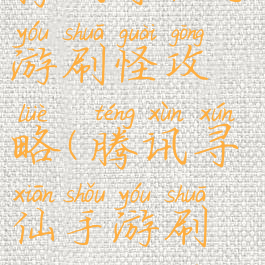 yóu shuā guài gōng
游刷怪攻
lüè téng xùn xún
略(腾讯寻
xiān shǒu yóu shuā
仙手游刷